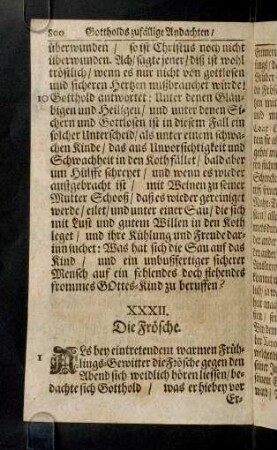 800 Gottholds zufällige Andachten /
überwunden / so ist Christus noch nicht
überwunden. Ach / sagte jener / diß ist wohl
tröstlich / wenn es nur nicht von gottlosen
und sicheren Hertzen mißbrauchet würde!
10 Gotthold antwortet: Unter denen Gläu-
bigen und Heiligen / und unter denen Si-
chern und Gottlosen ist in diesem Fall ein
solcher Unterscheid / als unter einem schwa-
chen Kinde / das aus Unvorsichtigkeit und
Schwachheit in den Koth fället / bald aber
um Hülffe schreyet / und wenn es wieder
außgebracht ist / mit Weinen zu seiner
Mutter Schooß / daß es wieder gereiniget
werde / eilet / und unter einer Sau / die sich
mit Lust und gutem Willen in den Koth
leget / und ihre Kühlung und Freude dar-
inn suchet: Was hat sich die Sau auf das
Kind / und ein unbußfertiger sicherer
Mensch auf ein fehlendes doch flehendes
frommes GOttes-Kind zu beruffen?
XXXII.
Die Frösche.
1 Als bey eintretendem warmen Früh-
lings-Gewitter die Frösche gegen den
Abend sich weidlich hören liessen / be-
dachte sich Gotthold / was er hiebey vor
Er-